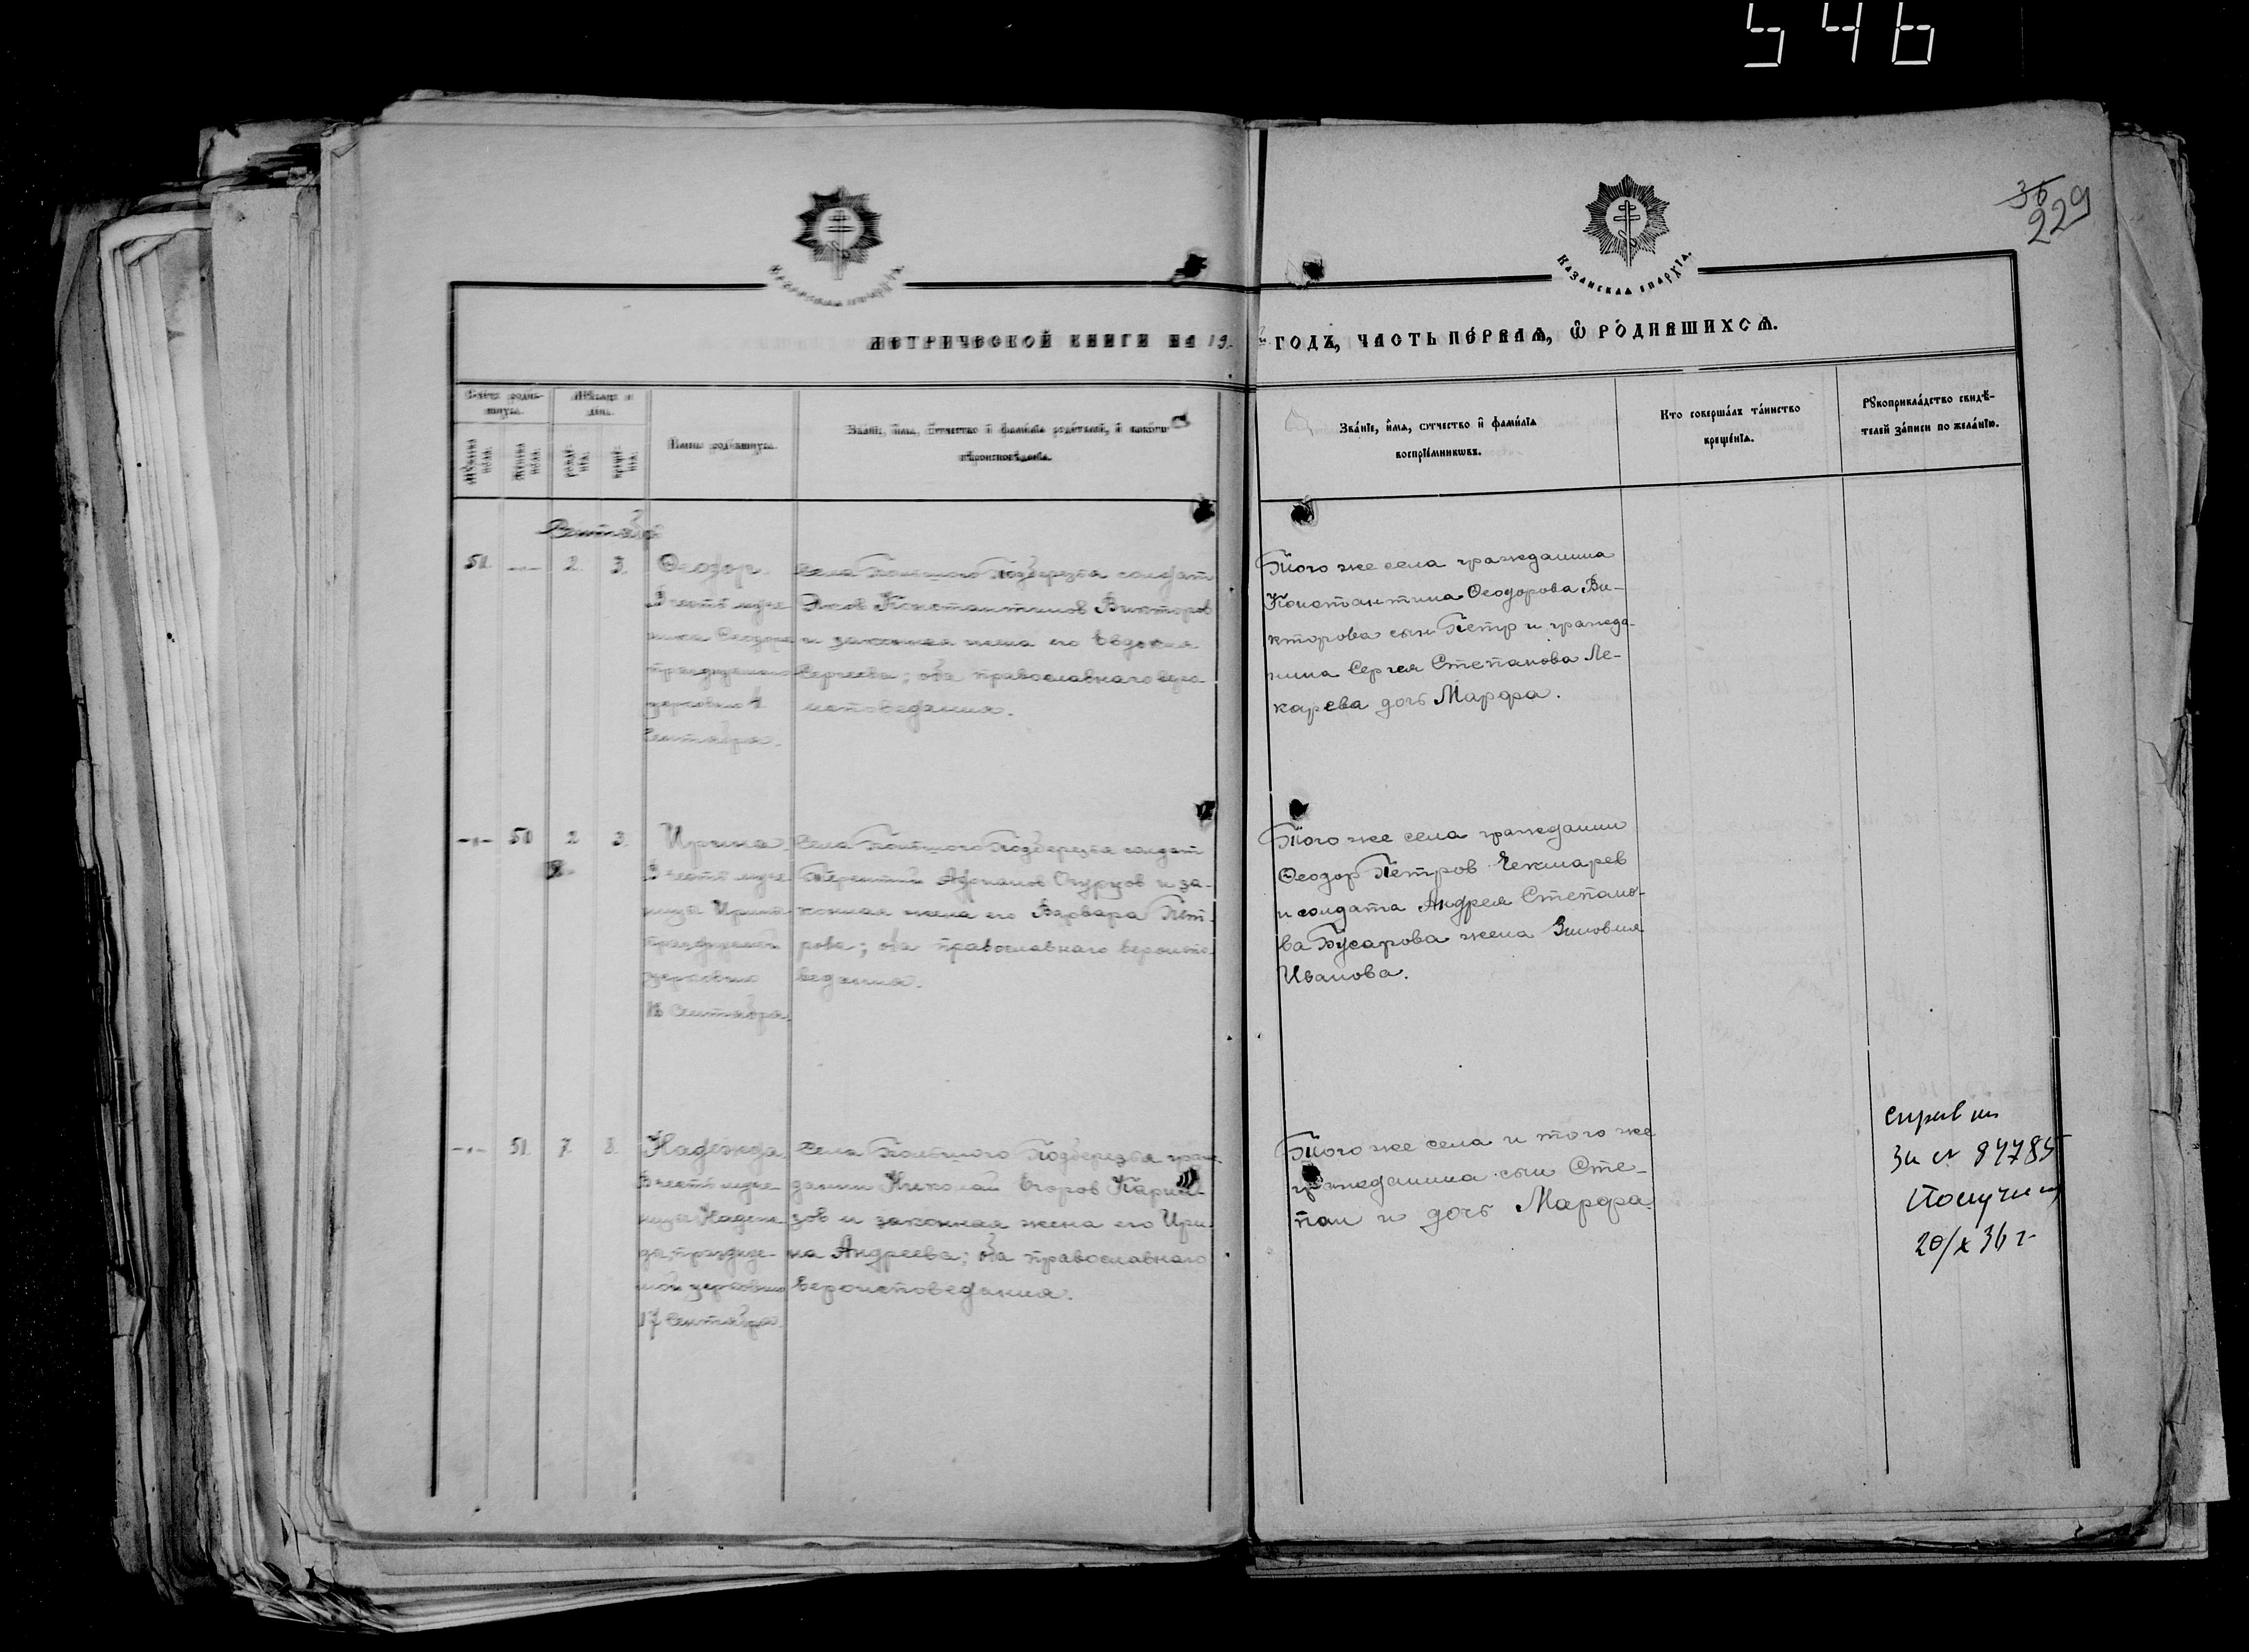 546
36
229
Казанская епархіа.
Казанская епархїа.
Метрической книги на 19
годъ, часть первая, ѿ родившихся.
Счетъ родив-
шихся.
Мужеска
пола.
Женска
пола.
Мѣсяцъ и
день.
рожде-
нїя.
креще-
нїя.
Имена родившихся.
Званїе, имя, отчество и фамилїя родителей, и какого
вѣроисповѣданїя.
Званїе, имя, отчество и фамилїя
воспрїемниковъ.
Кто совершалъ таинство
крещенїя.
Рукоприкладство свидѣ-
телей записи по желанїю.
Сентябрь
51. 2. 3. Феодор.
В честь муче-
ника Феодора
празднуемаго
церковью 4
Сентября.
Села Большого Подберезья солдат
Яков Константинов Викторов
и законная жена его Евдокия
Сергеева; оба православнаго веро
исповедания.
Того же села гражданина
Константина Феодорова Ви-
кторова сын Петр и гражда-
нина Сергея Степанова Ле-
карева дочь Марфа.
50 2 3. Ирина.
В честь муче-
ницы Ирины
празднуемой
церковью
18 Сентября.
Села Большого Подберезья солдат
Терентий Афонасов Огурцов и за-
конная жена его Варвара Пет-
рова; оба православнаго вероиспо-
ведания.
Того же села гражданин
Феодор Петров Чекмарев
и солдата Андрея Степано-
ва Бусарова жена Зиновия
Иванова.
51. 7. 8. Надежда.
В честь муче-
ницы Надеж-
ды, праздуе-
мой церковью
17 Сентября.
Села Большого Подберезья граж-
данин Николай Егоров
зов и законная жена его Ири-
на Андреева; оба православнаго
вероисповедания.
Того же села и того же
гражданина сын Сте-
пан и дочь Марфа.
за № 84785
Получил
20/X 36 г